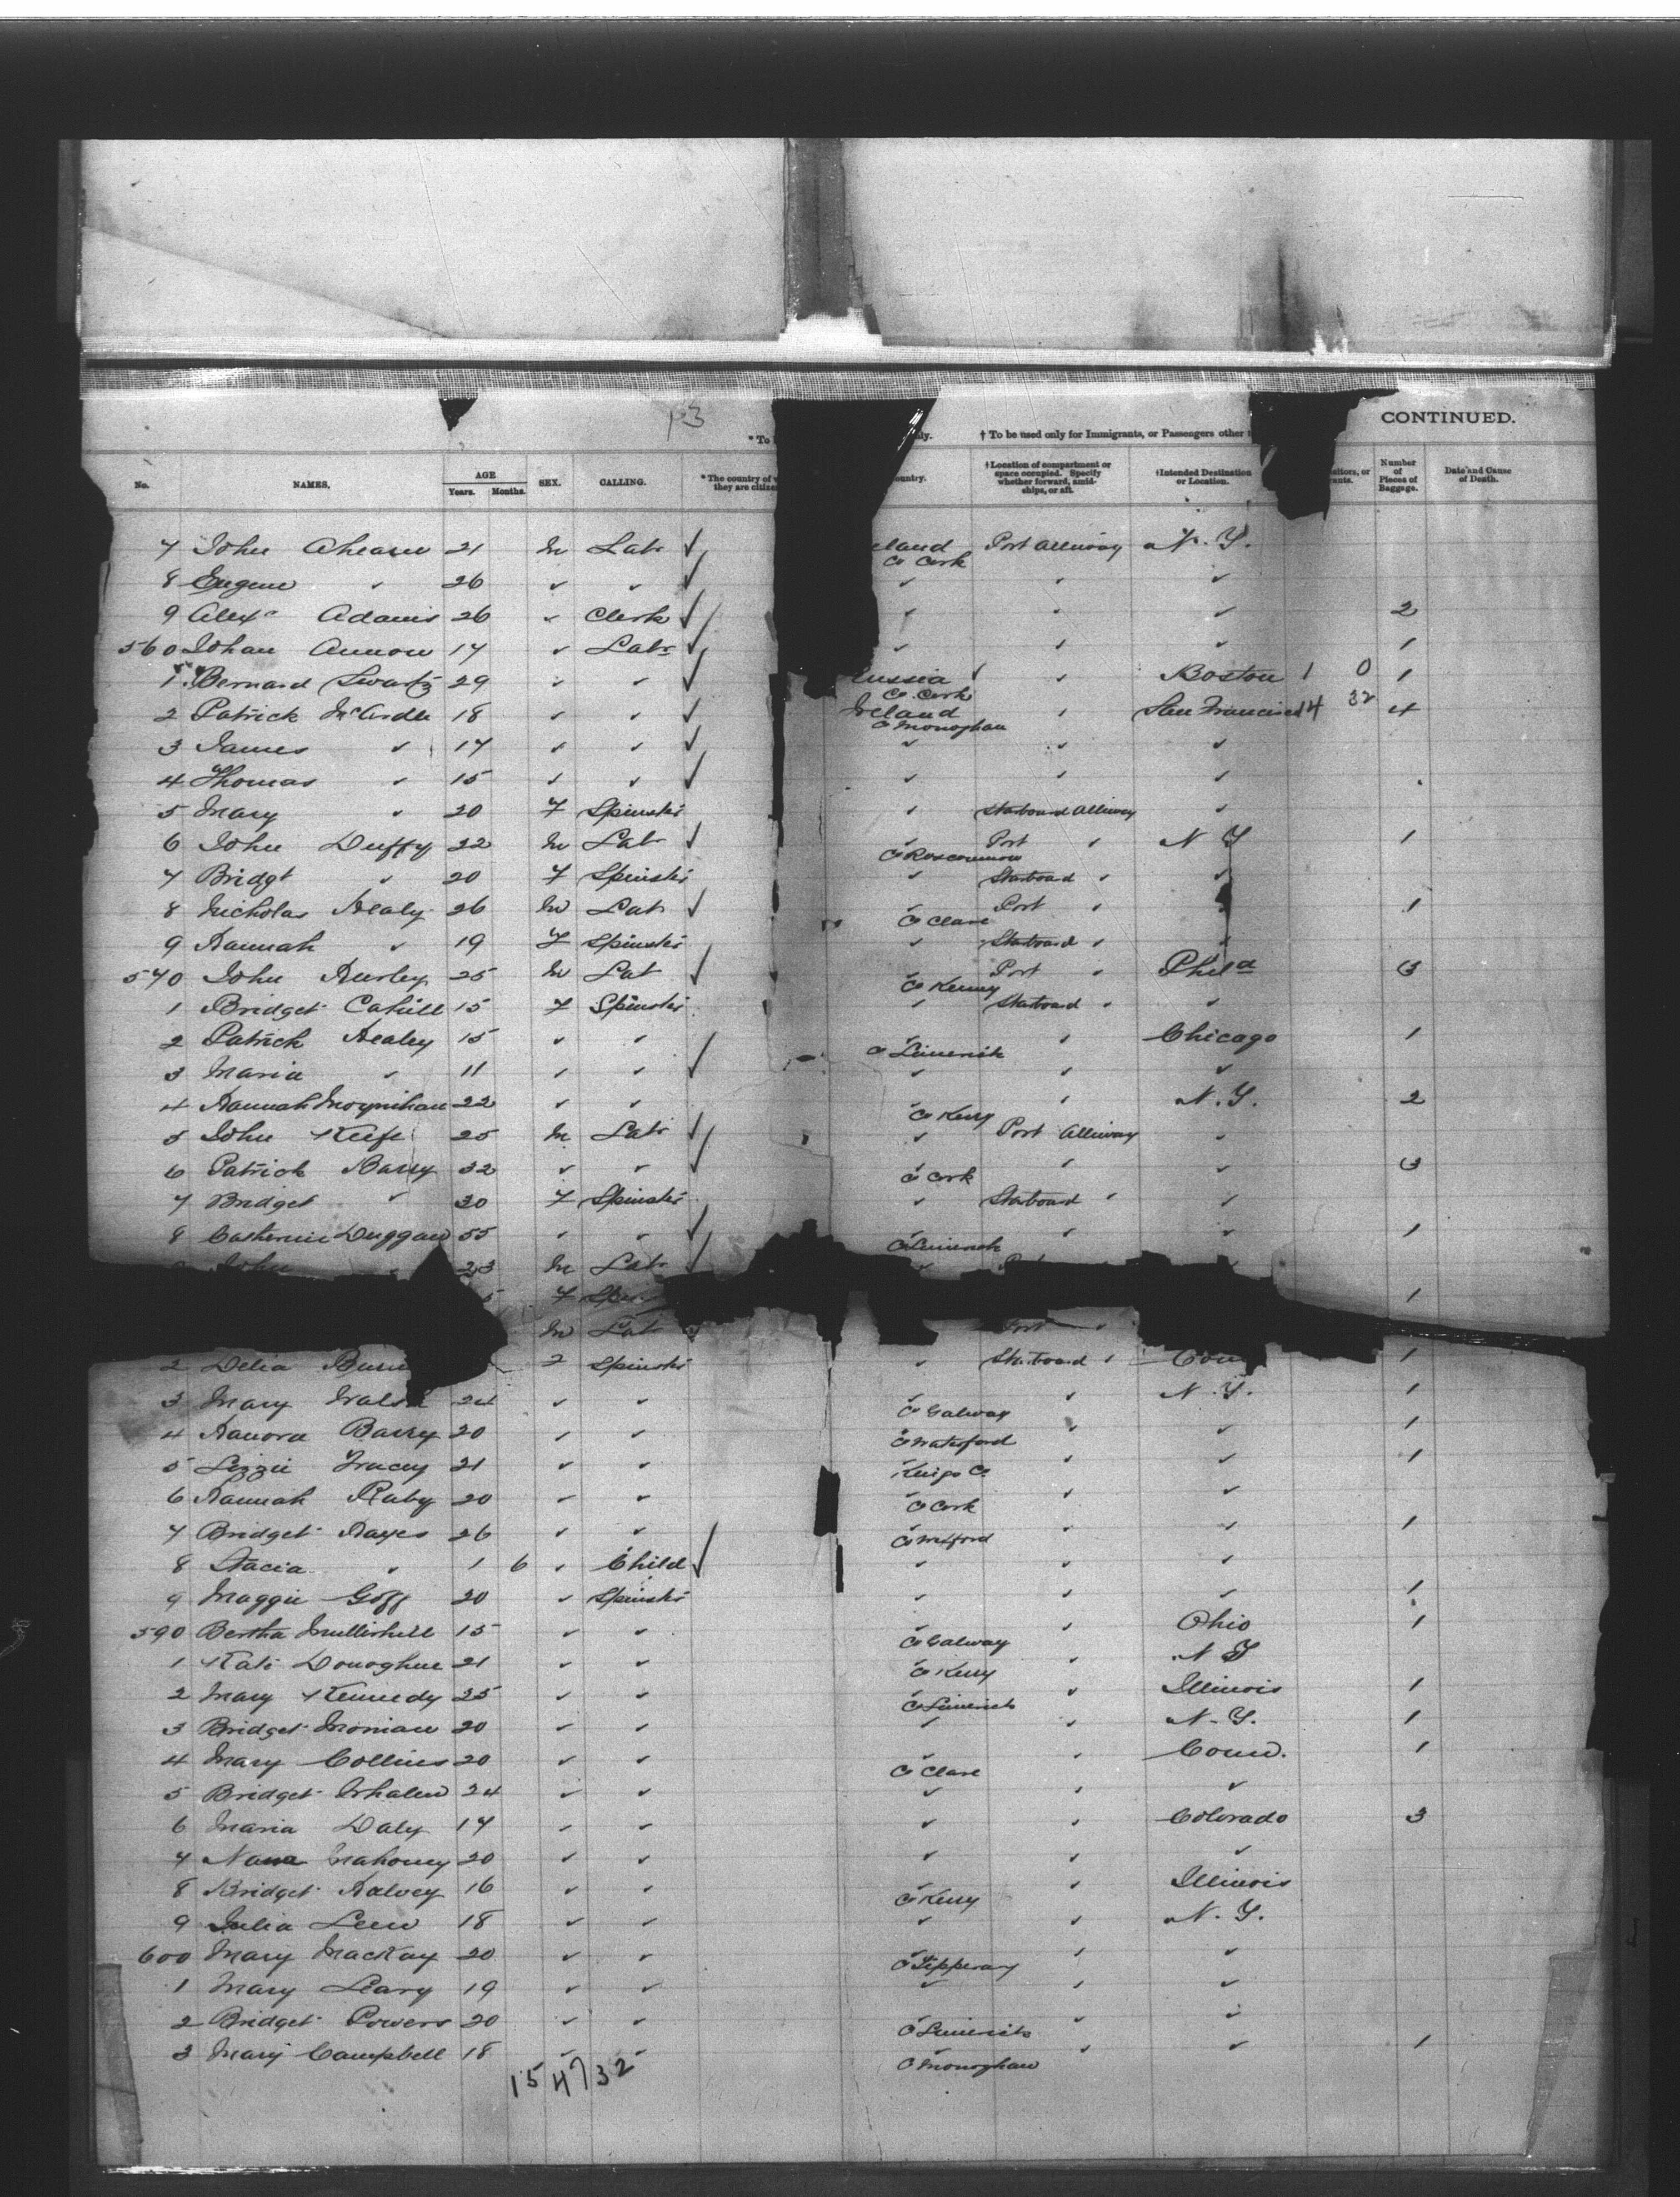 13
CONTINUED.
* To
† To be used only for Immigrants, or Passengers other
No. NAMES. AGE Years. Months. SEX. CALLING. * The country of they are citize country. † Location of compartment or space occupied. Specify whether forward, amidships, or aft. † Intended Destination or Location. Number of Pieces of Baggage. Date and Cause of Death.
7 John Ahearn 21 M Labr ✓ eland Co Cork Port Alleiway N. Y.
8 Eugene " 26 " " ✓ " " "
9 Alexr Adams 26 " Clerk ✓ " " " 2
560 Johan 17 " Labr ✓ " " " 1
1 Bernard Swartz 29 " " ✓ ussia Co. Cork " Boston 1 0 1
2 Patrick McArdle 18 " " ✓ Ireland Co Monoghan " San Francisco 14 32 4
3 James " 17 " " ✓ " " "
4 Thomas " 15 " " ✓ " " "
5 Mary " 20 F Spinstr " Starboard Alleiway "
6 John Duffy 22 M Labr ✓ Co Roscommon Port " N Y 1
7 Bridgt " 20 F Spinstr " Starboard " "
8 Nicholas Healy 26 M Labr ✓ " Co Clare Port " " 1
9 Hannah " 19 F Spinstr " Starboard " "
570 John Hurley 25 M Lab ✓ " Co Port " Phila 3
1 Bridget Cahill 15 F Spinstr " Starboard " "
2 Patrick Healey 15 " " " Co Limerick " Chicago 1
3 Maria " 11 " " ✓ " " "
4 Hannah Moynihan 22 " " " Co Kerry " N. Y. 2
5 John Keefe 25 M Labr ✓ " Port Alleiway "
6 Patrick Barry 32 " " ✓ " Co Cork " " 3
7 Bridget " 30 F Spinstr " Starboard " "
8 Catherine Duggan 55 " " ✓ " Co Limerick " " 1
John " 23 M Labr ✓ "
5 F 1
M Lab Port "
2 Delia 2 Spinstr " Starboard " Conn 1
3 Mary Walsh 24 " " " Co Galway " N. Y. 1
4 Hanora Barry 20 " " " Co Waterford " " 1
5 Lizzie Tracey 21 " " " Kings Co " " 1
6 Hannah Raby 20 " " " Co Cork " "
7 Bridget Hayes 26 " " " Co Wexford " " 1
8 Stacia " 1 6 " Child ✓ " " "
9 Maggie Goff 20 " Spinstr " " " 1
590 Bertha 15 " " " Co Galway " Ohio 1
1 Kate Donoghue 21 " " " Co Kerry " N Y
2 Mary Kennedy 25 " " " Co Limerick " Illinois 1
3 Bridget 20 " " " " N. Y. 1
4 Mary Collins 20 " " " Co Clare " Conn. 1
5 Bridget Whalen 24 " " " " "
6 Maria Daly 17 " " " " Colorado 3
7 Mahoney 20 " " " " "
8 Bridget Halvey 16 " " " Co Kerry " Illinois
9 Julia 18 " " " " N. Y.
600 Mary MacKay 20 " " " Co Tipperary " "
1 Mary Leary 19 " " " " "
2 Bridget Powers 20 " " " Co Limerick " "
3 Mary Campbell 18 " " " Co Monoghan " " 1
15 47 32